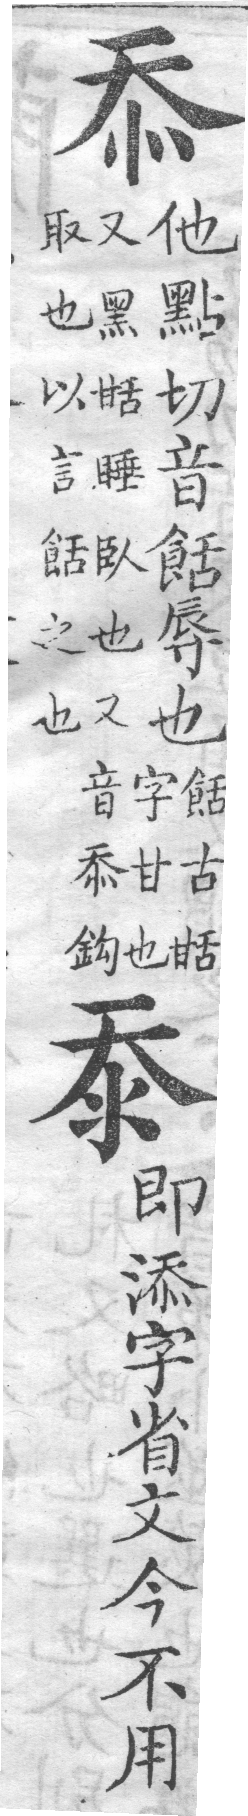 忝
他點切音餂辱也餂古甛
字甘也
又黑甛睡臥也又音忝鈎
取也以言餂之也
即添字省文今不用